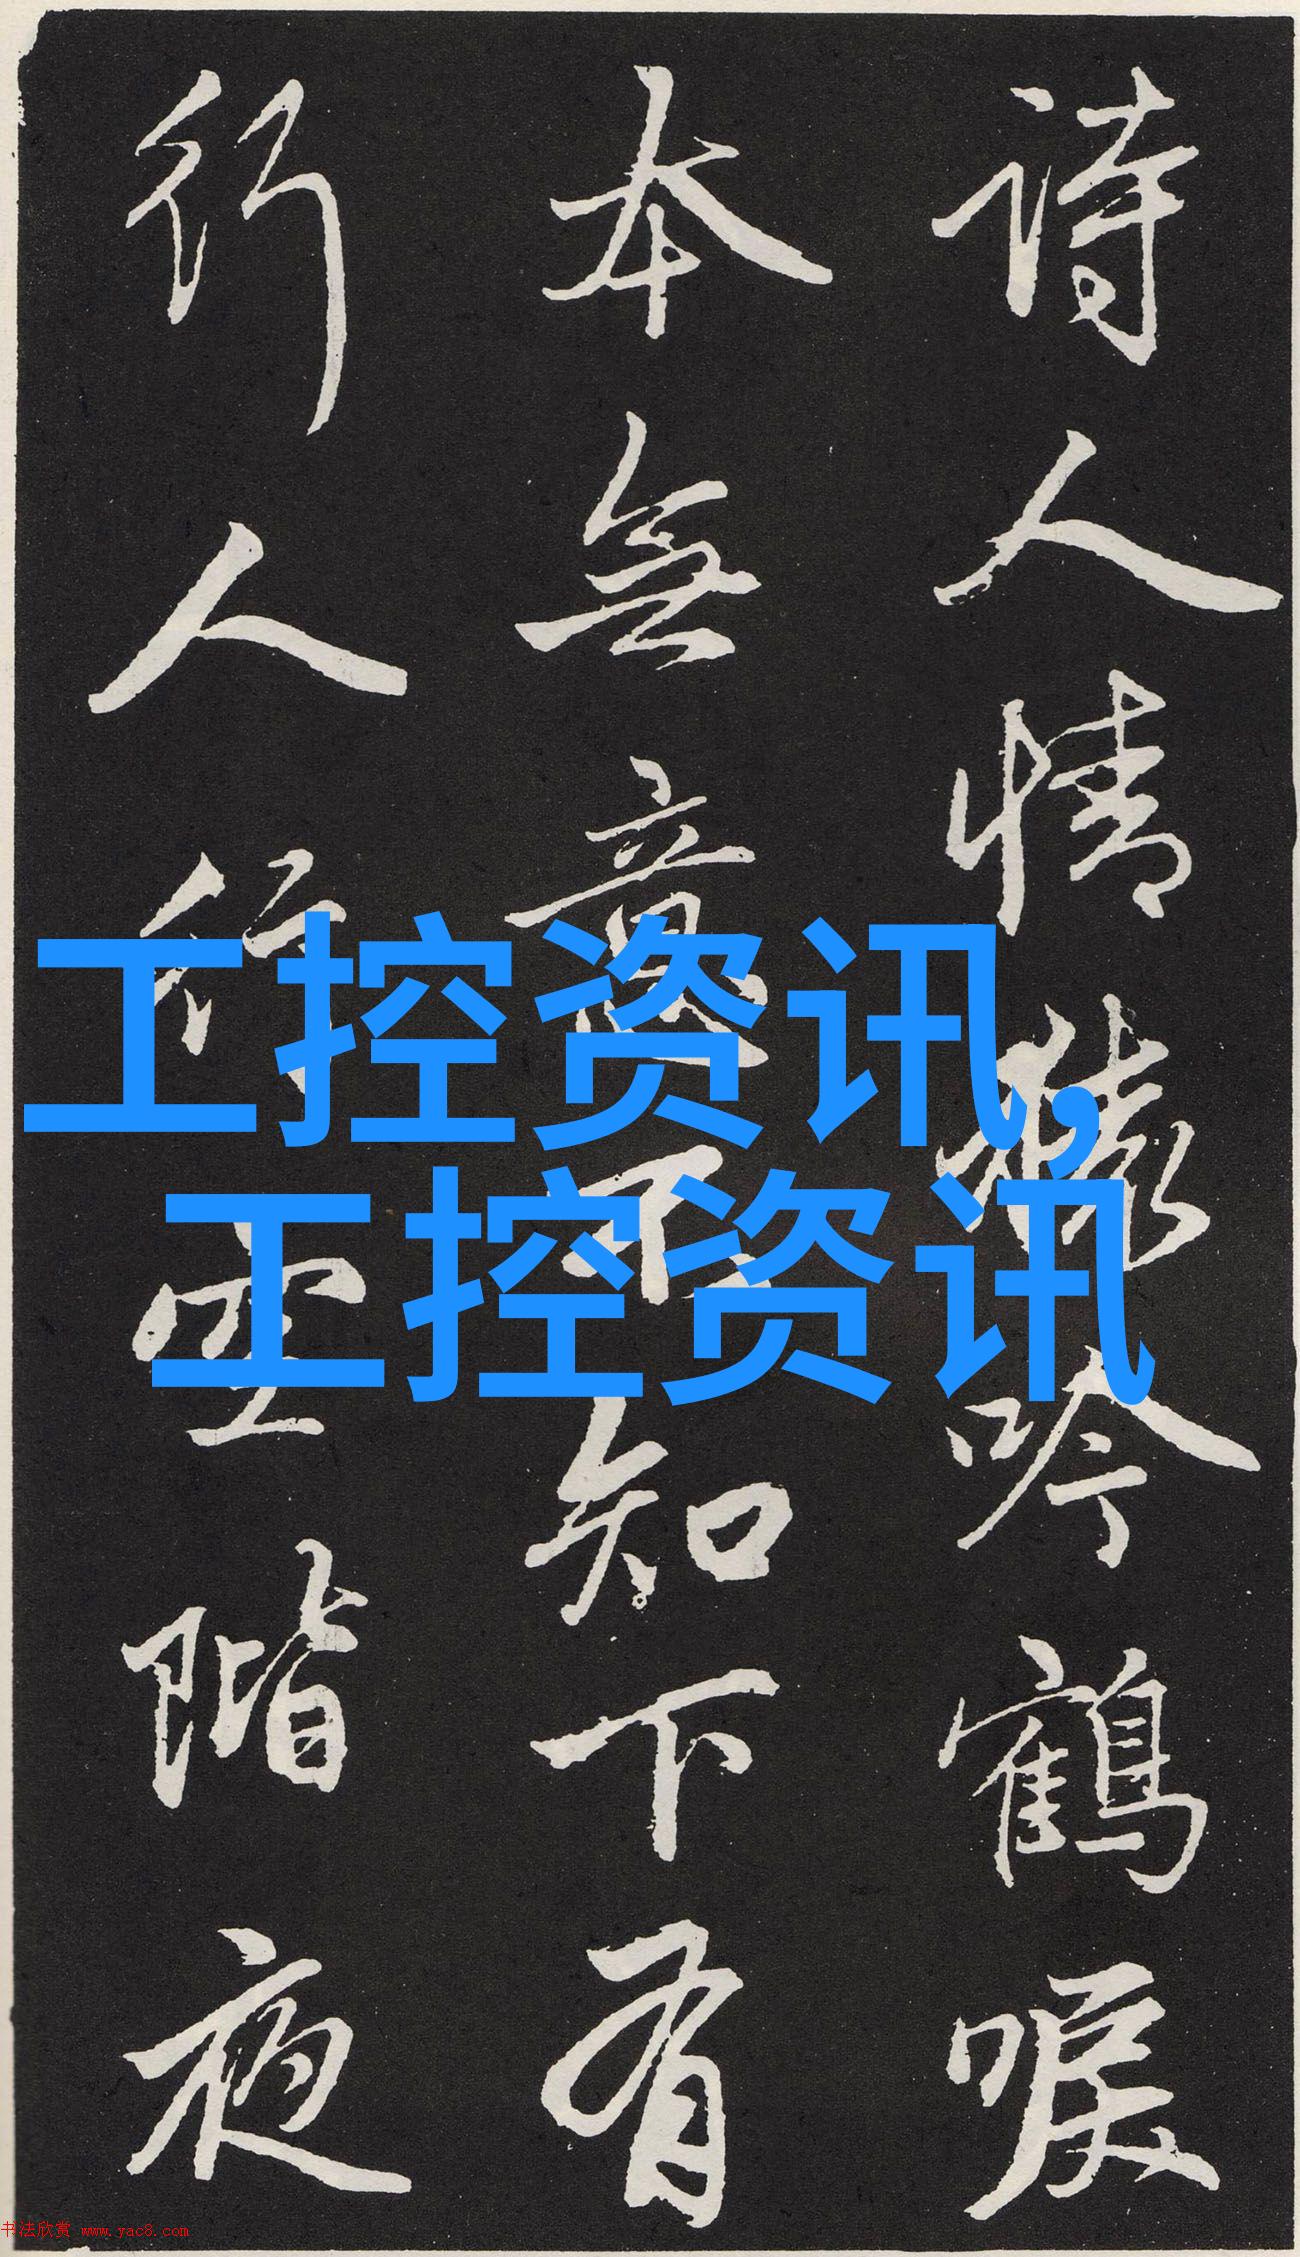 诗人情猿吟鹤唳
本无意不知下有
行人行空阶夜
工控资讯,
工控资讯
书法欣赏 www.yac8.com